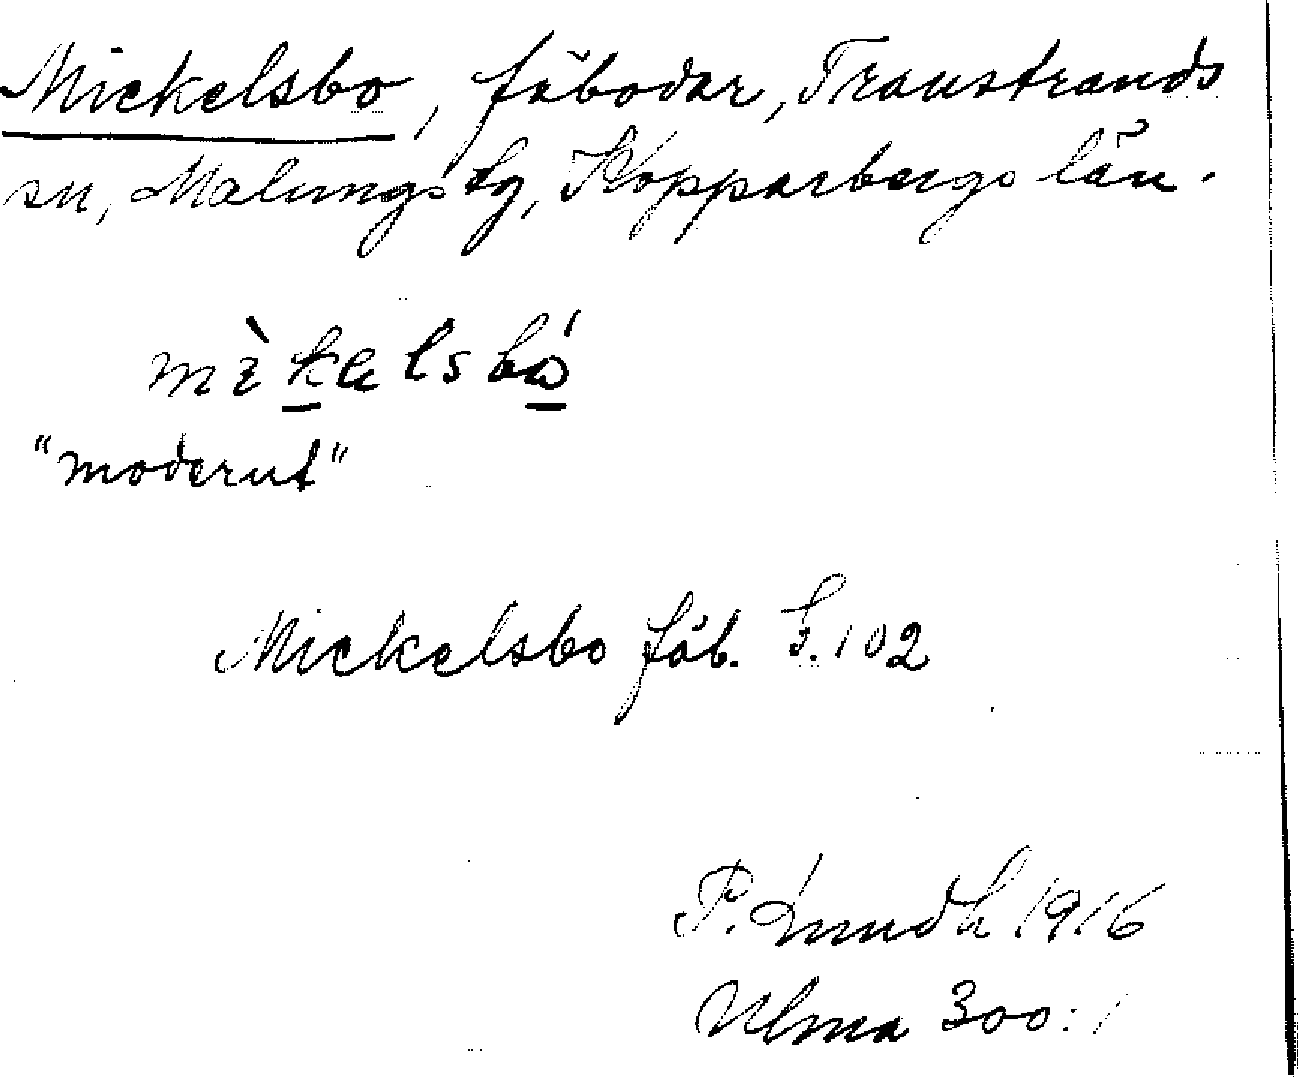 Mickelsbo, fäbodar, Transtrands
sn, Malungs tg, Kopparbergs län.
mìkelsbó
"modernt"
Mickelsbo fäb. S. 102
P. Lundh 1916
Ulma 300:1